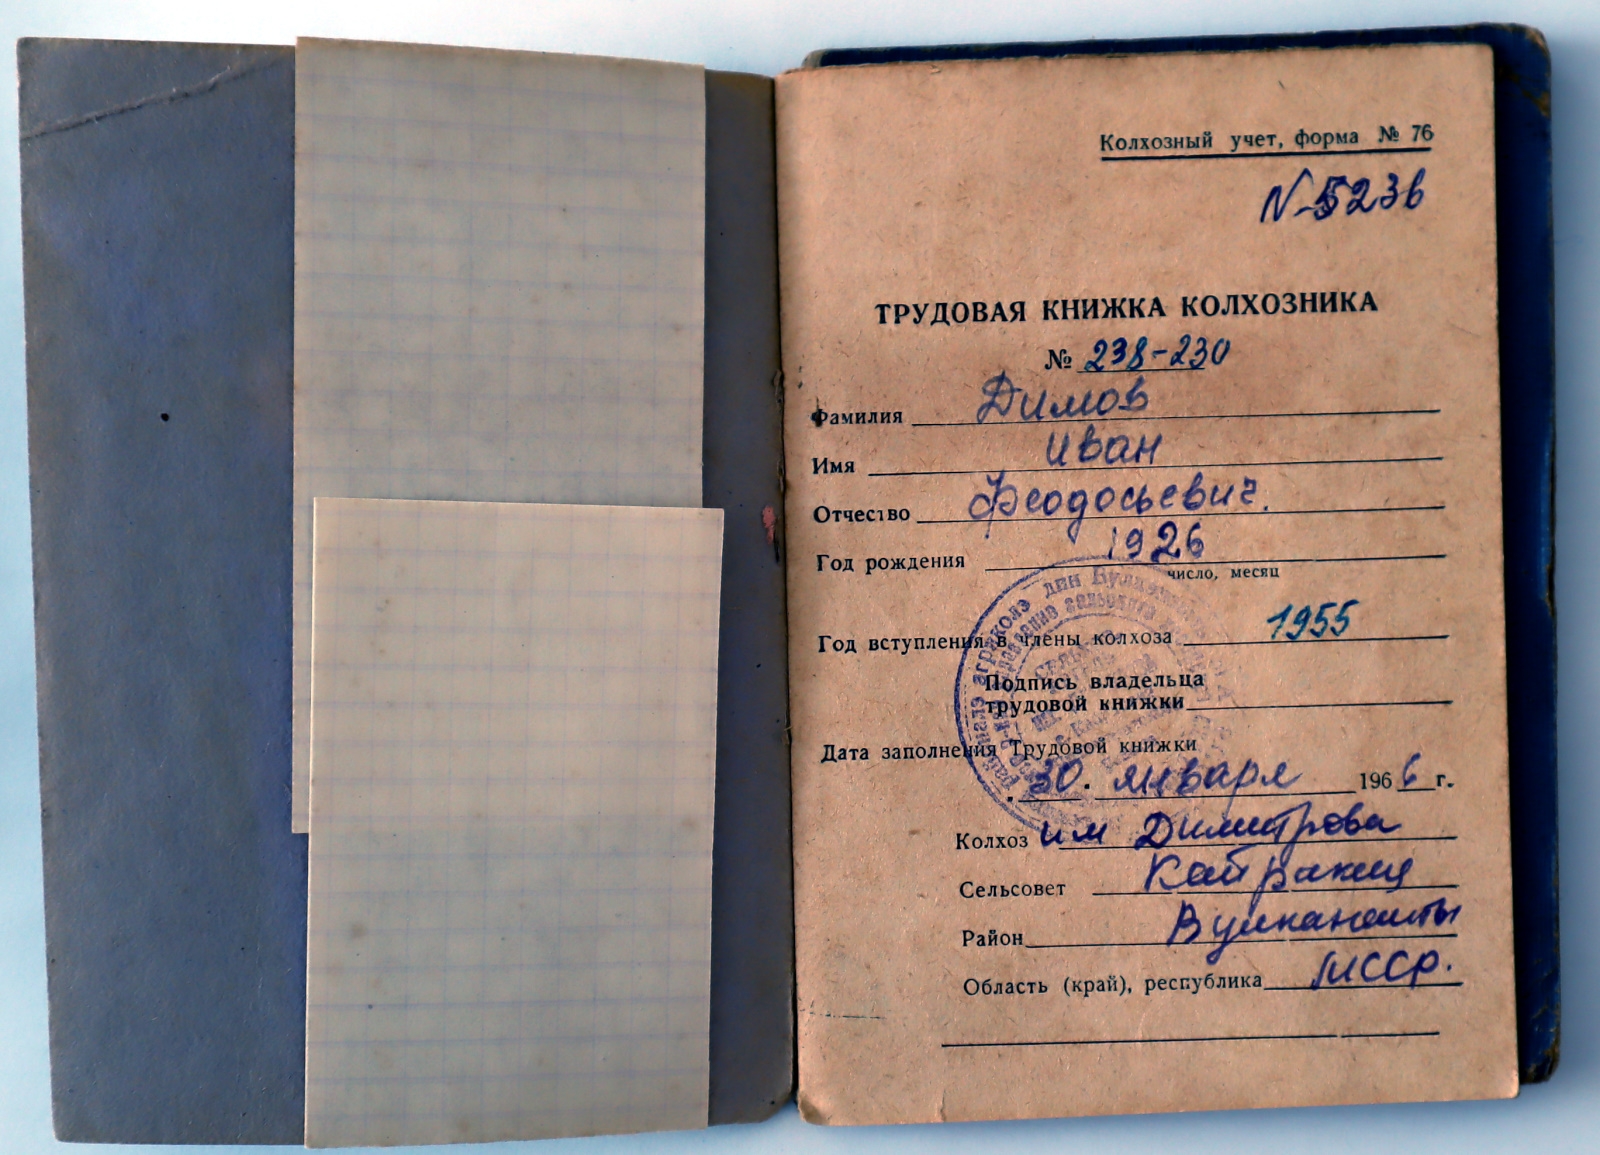 Колхозный учет, форма № 76
N-5236
ТРУДОВАЯ КНИЖКА КОЛХОЗНИКА
№ 238-230
Фамилия Димов
Имя Иван
Отчество Феодосьевич.
Год рождения 1926
число, месяц
Год вступления в члены колхоза 1955
Подпись владельца
трудовой книжки
Дата заполнения Трудовой книжки
30. января 1966 г.
Колхоз им Димитрова
Сельсовет
Район Вулканешты
Область (край), республика МССР.